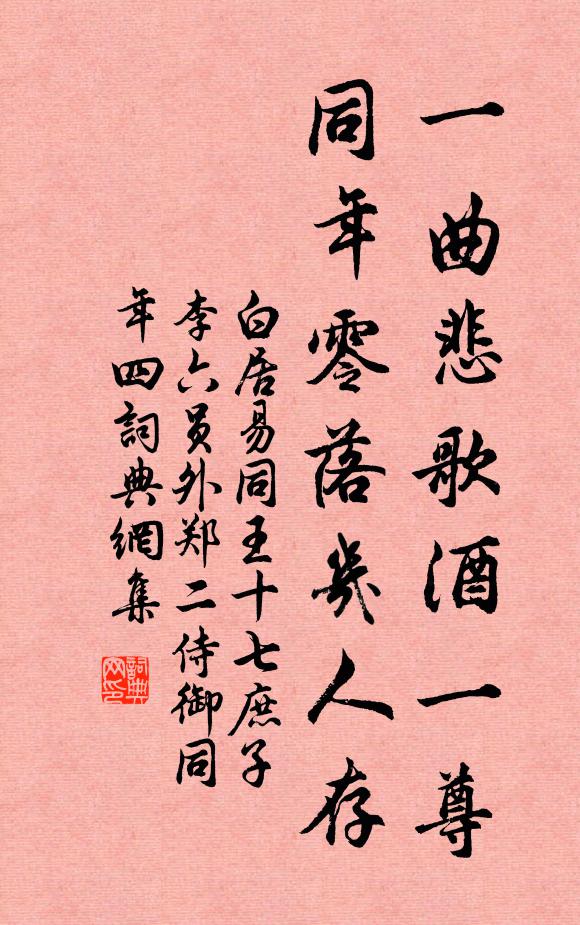 一曲悲歌酒一尊
同年零落幾人存
白居易同王十七庶子
李六员外郑二侍御同
年四詞典網集
詞典网印